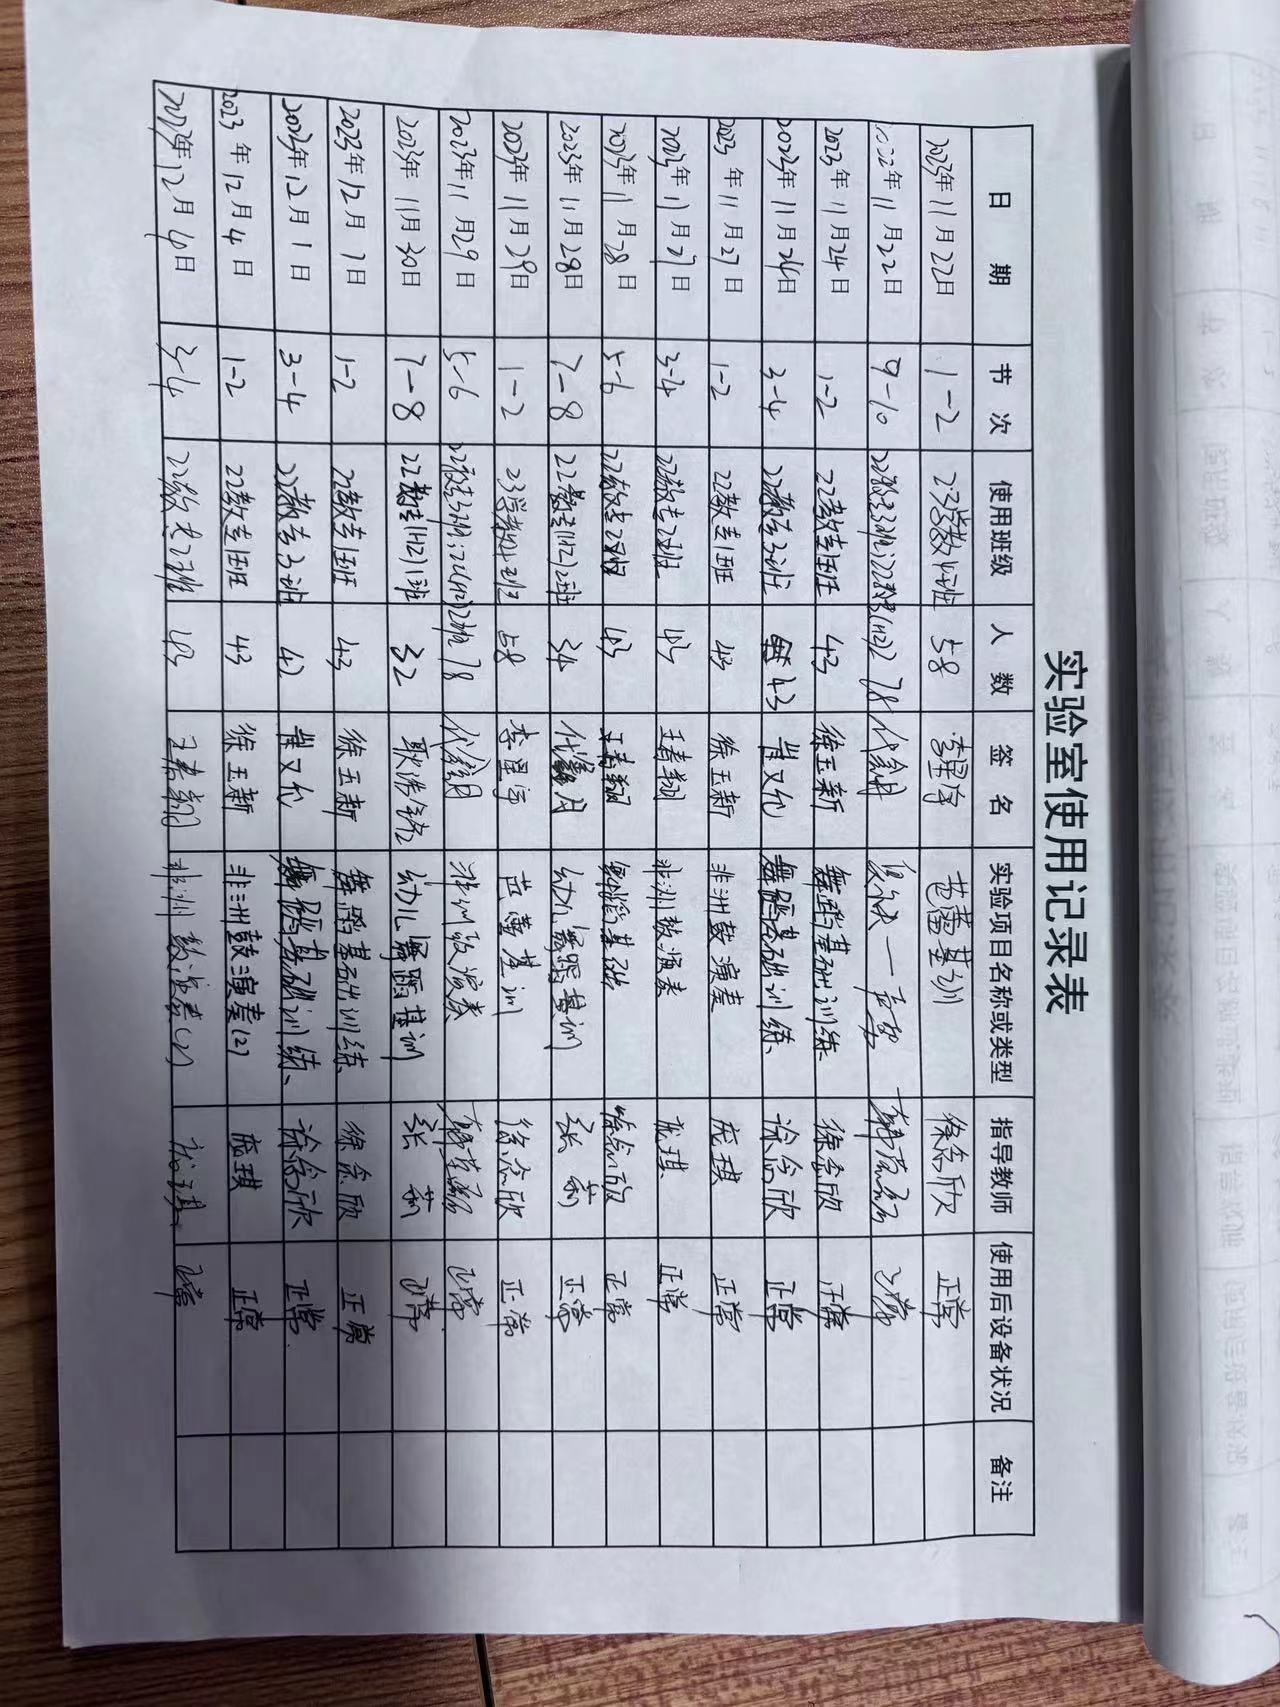 实验室使用记录表
日期 节次 使用班级 人数 签名 实验项目名称或类型 指导教师 使用后设备状况 备注
2023年11月22日 1-2 23学教4班 58 芭蕾基训 徐念欣 正常
2022年11月22日 9-10 78
2023年11月24日 1-2 22教专1班 43 徐玉新 舞蹈基础训练 徐念欣 正常
2023年11月24日 3-4 22教专3班 43 肖文伦 舞蹈基础训练 徐念欣 正常
2023年11月27日 1-2 22教专1班 43 徐玉新 非洲鼓演奏 庞琪 正常
2023年11月27日 3-4 22教专2班 43 王春翔 非洲鼓演奏 庞琪 正常
2023年11月28日 5-6 22教专2班 43 王春翔 舞蹈基础 徐念欣 正常
2023年11月28日 7-8 22教专(H2)2班 34 幼儿舞蹈基训 张莉 正常
2023年11月29日 1-2 58 芭蕾基训 徐念欣 正常
2023年11月29日 5-6 78 非洲鼓演奏 正常
2023年11月30日 7-8 22教专(H2)1班 32 幼儿舞蹈基训 张莉 正常
2023年12月1日 1-2 22教专1班 43 徐玉新 舞蹈基础训练 徐念欣 正常
2023年12月1日 3-4 22教专3班 42 肖文伦 舞蹈基础训练 徐念欣 正常
2023年12月4日 1-2 22教专1班 43 徐玉新 非洲鼓演奏(2) 庞琪 正常
2023年12月4日 3-4 22教专2班 43 王春翔 非洲鼓演奏(2) 庞琪 正常